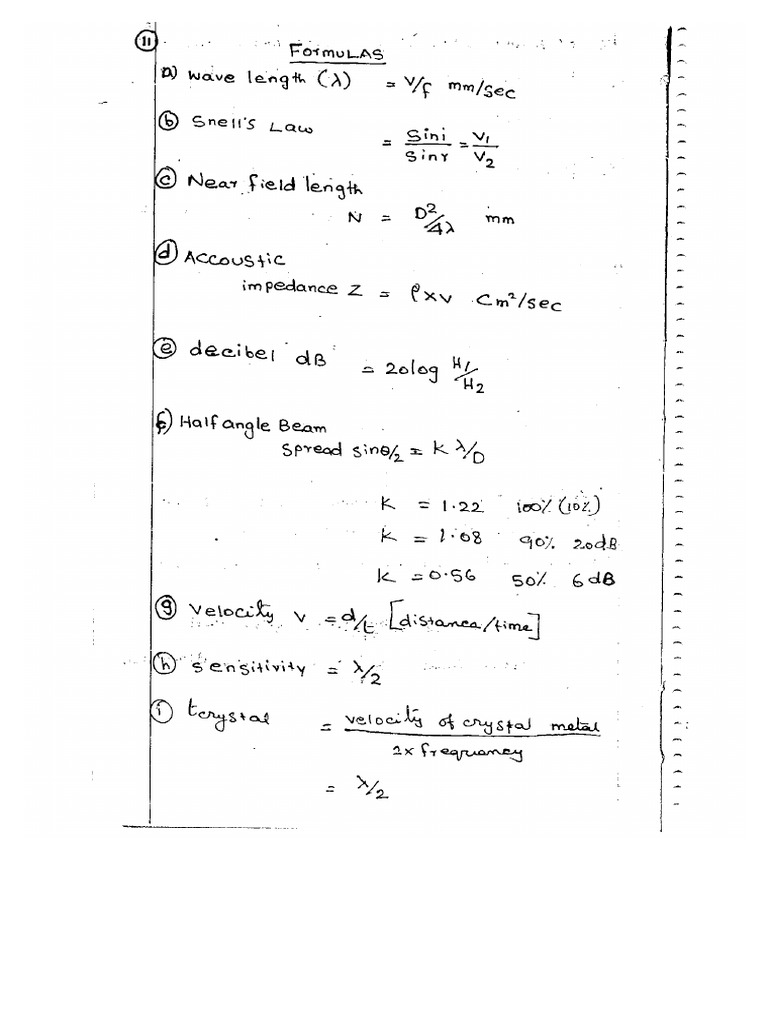 11
FORMULAS
a) Wave length (λ) = V/f mm/sec
b) Snell's Law = Sini/Sinr = V1/V2
c) Near field length
N = D²/4λ mm
d) Accoustic
impedance Z = ρxv Cm²/sec
e) decibel dB = 20log H1/H2
f) Half angle Beam
Spread Sinθ/2 = K λ/D
K = 1.22 100% (10%)
K = 1.08 90% 20dB
K = 0.56 50% 6dB
g) Velocity V = d/t [distance/time]
h) Sensitivity = λ/2
i) tcrystal = velocity of crystal metal
2x frequency
= λ/2